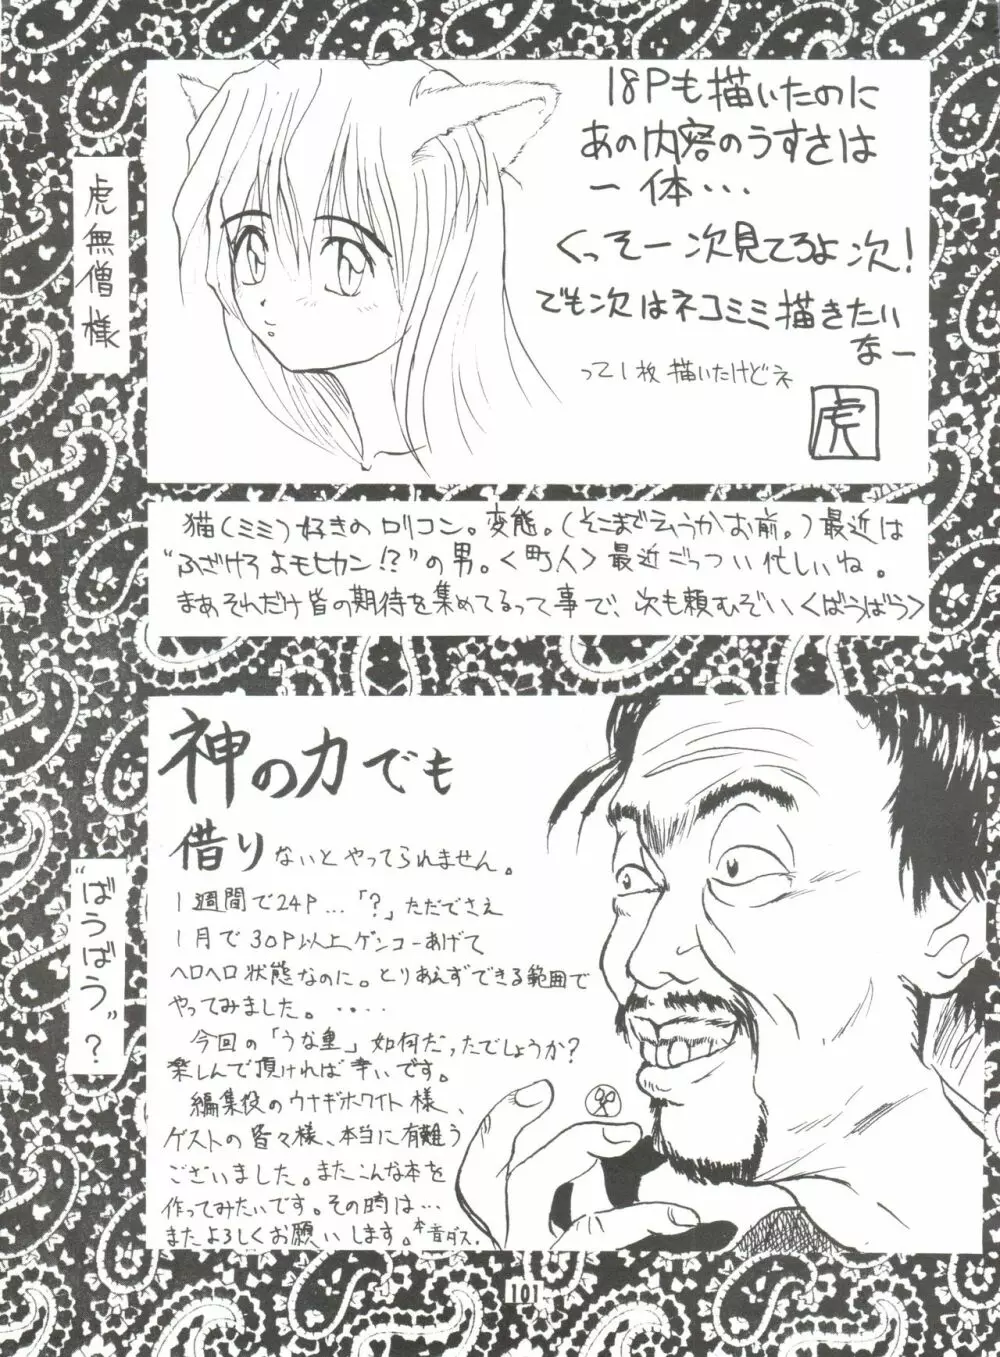 18Pも描いたのに
あの内容のうすさは
一体・・・
くっそー次見てろよ次!
でも次はネコミミ描きたい
なー
って1枚描いたけどネ
虎
虎無僧様
猫(ミミ)好きのロリコン。変態。(そこまでえうかお前。)最近は
"ふざけろよモヒカン!?"の男。<町人>最近ごっつい忙しいね。
まあそれだけ皆の期待を集めてるって事で、次も頼むぞい<ばうばう>
"ばうばう"?
神の力でも
借りないとやってられません。
1週間で24P…「?」ただでさえ
1月で30P以上ゲンコーあげて
ヘロヘロ状態なのに。とりあえずできる範囲で
やってみました。・・・・
今回の「うな重」如何だったでしょうか?
楽しんで頂ければ幸いです。
編集役のウナギホワイト様、
ゲストの皆々様、本当に有難う
ございました。またこんな本を
作ってみたいです。その時は…
またよろしくお願いします。本音ダス.
101